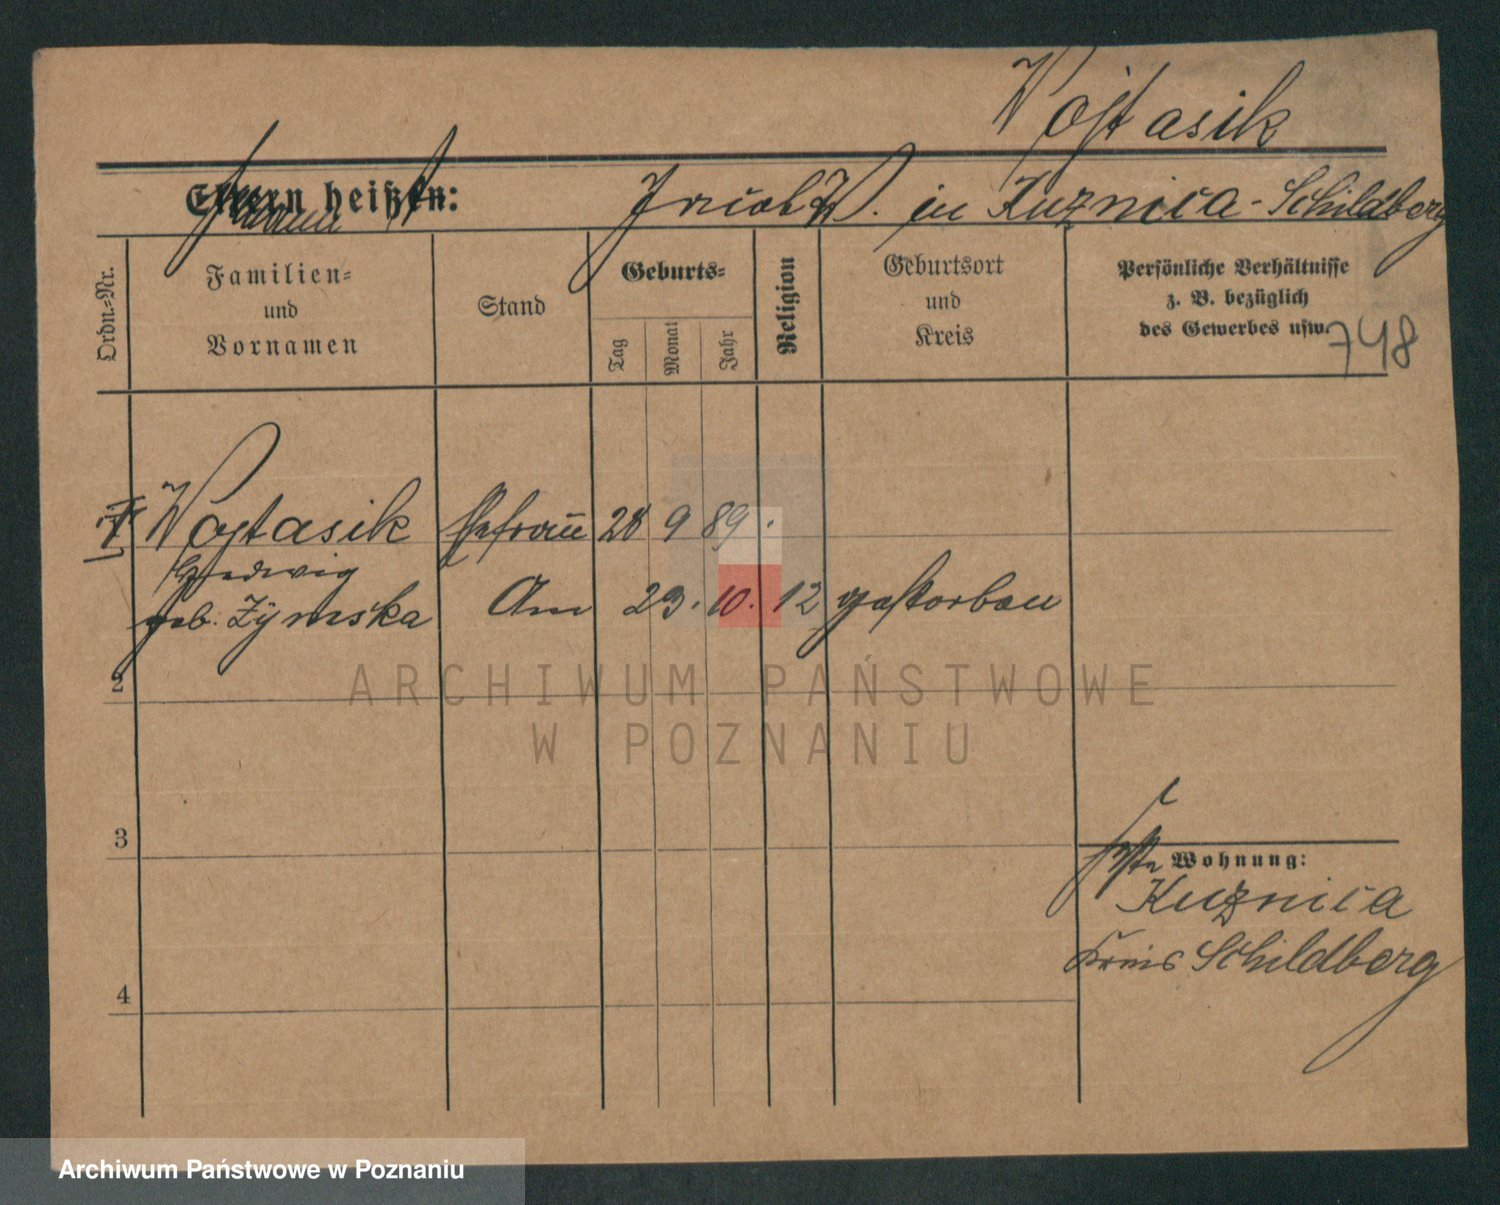 Wojtasik
Eltern heißen: Jacob W. in Kuznica-Schildberg
Ordn.-Nr.
Familien-
und
Vornamen
Stand
Geburts-
Tag
Monat
Jahr
Religion
Geburtsort
und
Kreis
Persönliche Verhältnisse
z. B. bezüglich
des Gewerbes usw.
748
1 Wojtasik Ehefrau 28 9 89.
Hedwig
geb. Zymska Am 23. 10. 12 gestorben
2
ARCHIWUM PAŃSTWOWE
W POZNANIU
3
Wohnung:
Kuznica
Kreis Schildberg
4
Archiwum Państwowe w Poznaniu